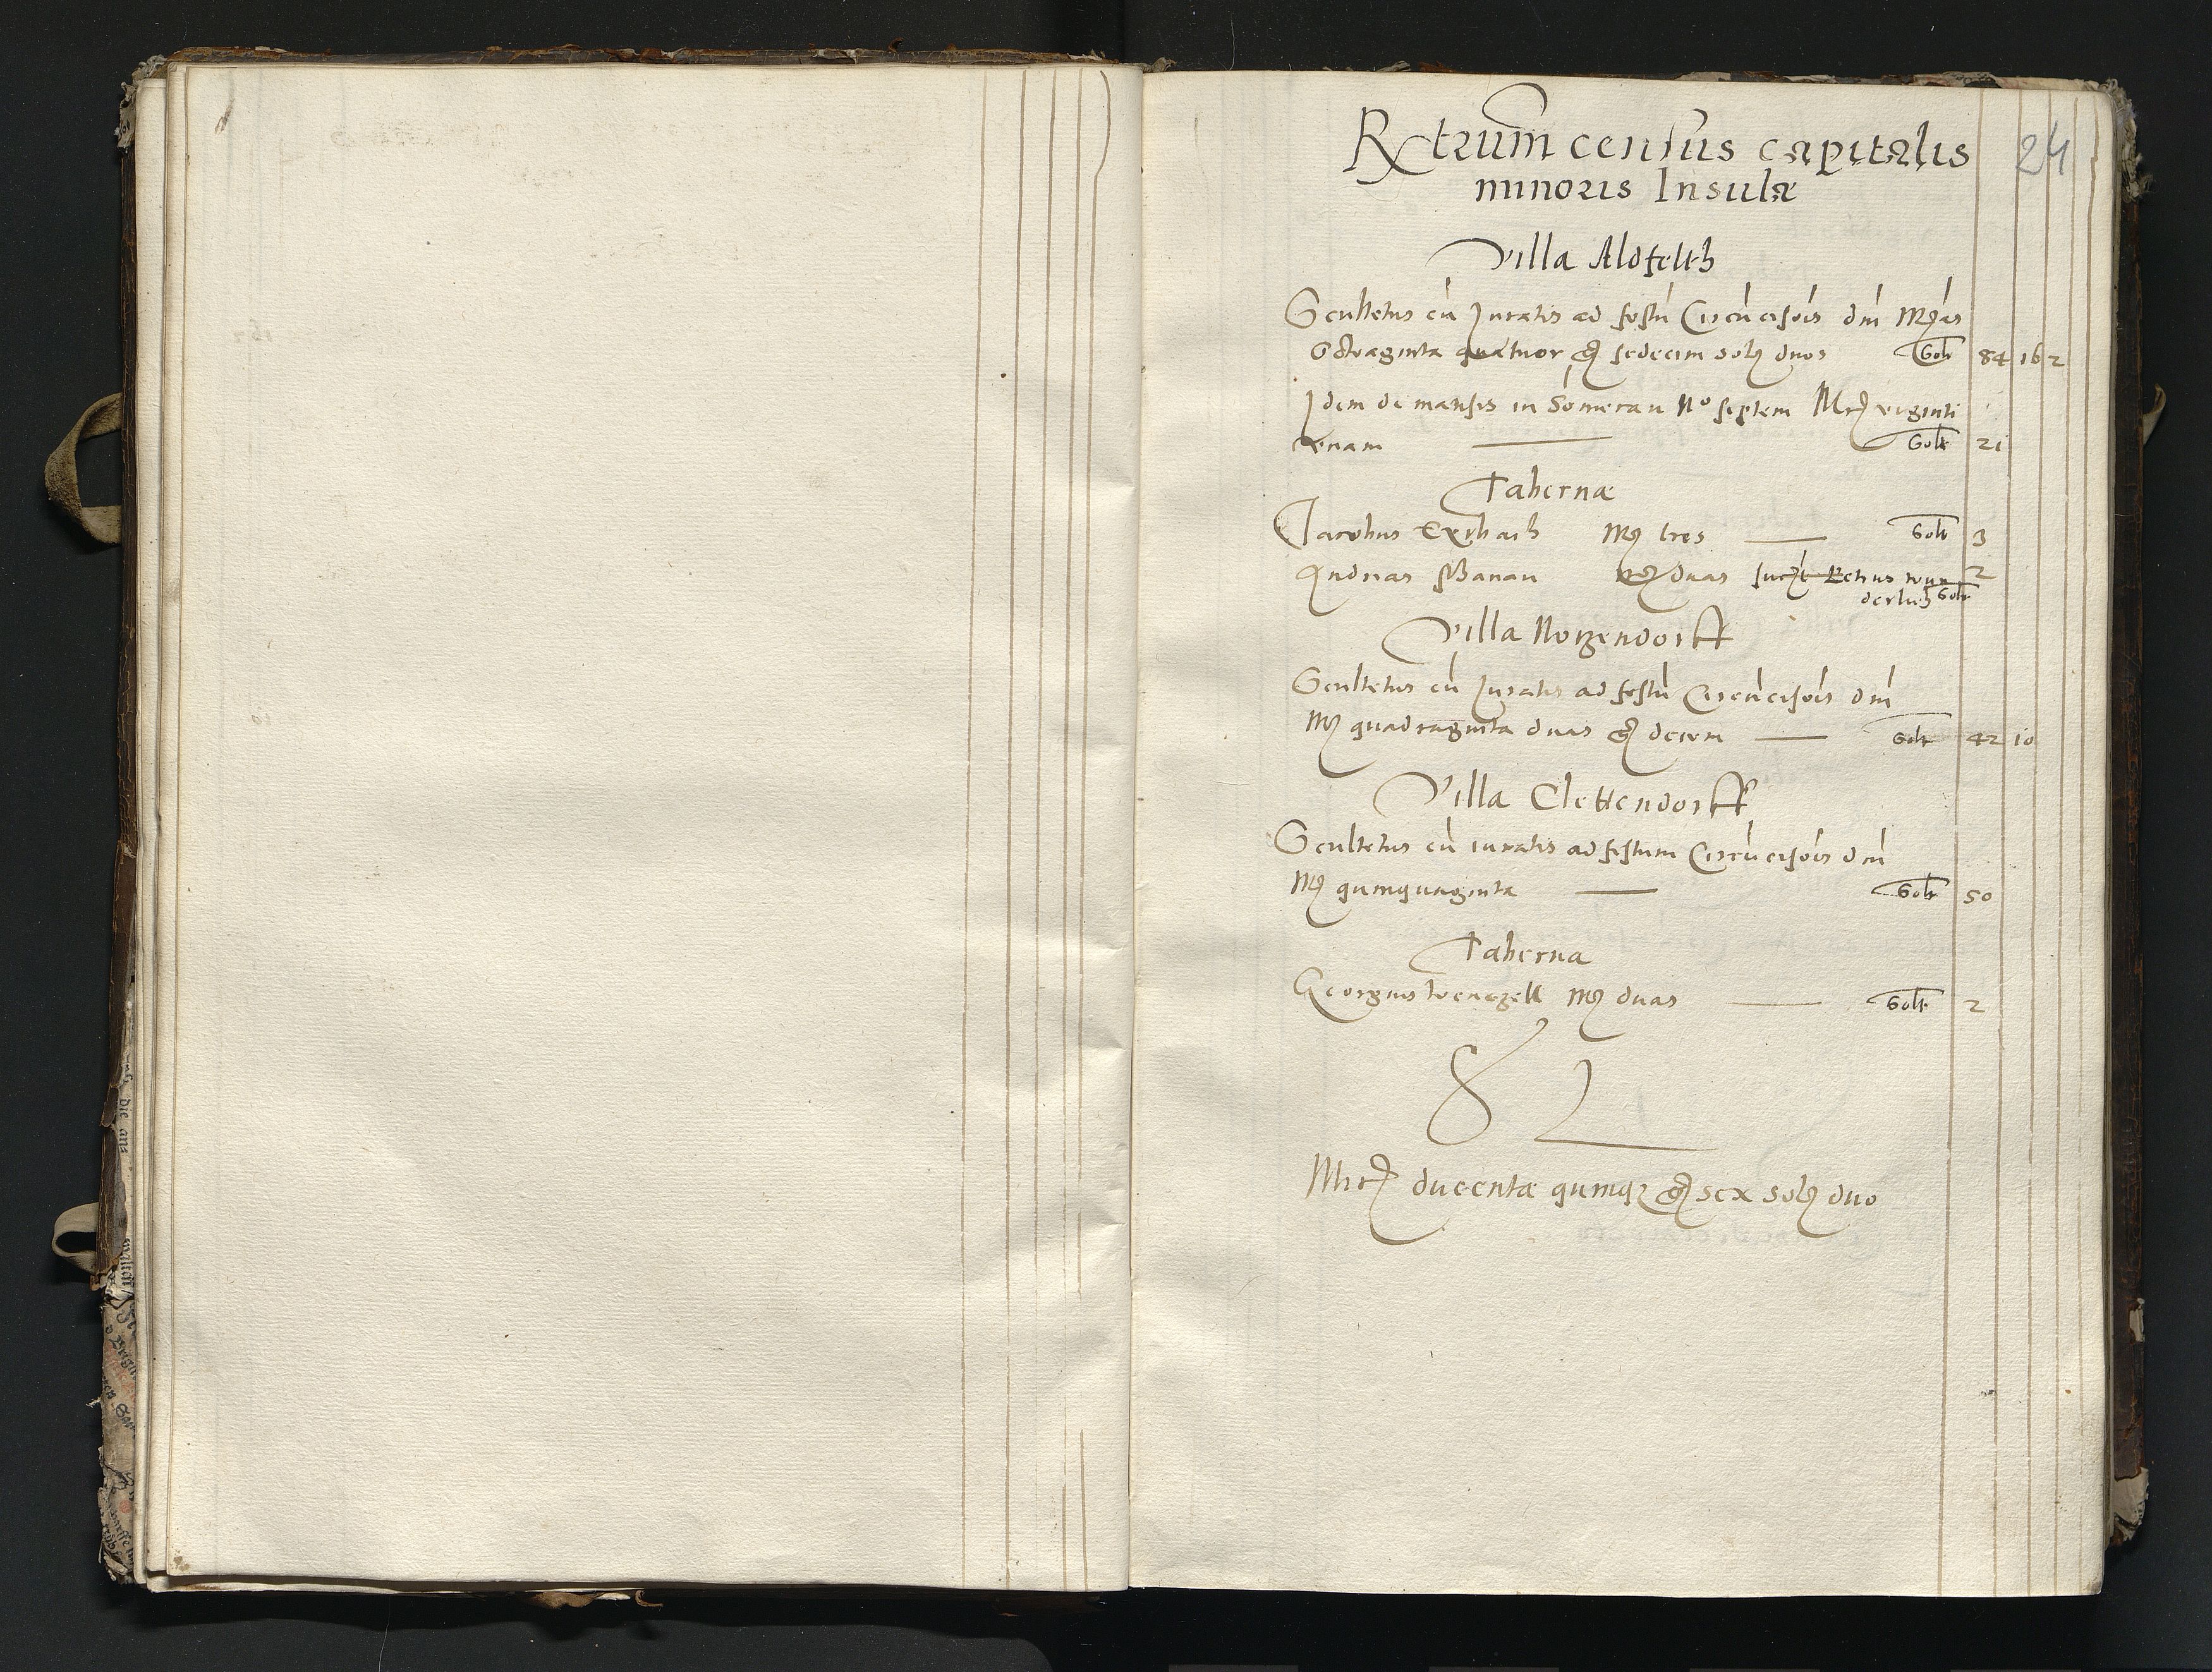 Rxtrum census capitalis
minoris Insulæ
24
Villa Aldfelth
Scultetus cũ Juratis ad festũ Circũcisõis dnĩ Mrcas
Octoaginta quatuor gr sedecim solȝ duos Solt 84 16 2
Idem de mansis in Somerau No septem Mrc viginti
vnam Solt 21
Tabernæ
Jacobus Mrc tres Solt 3
Andreas Mrc duas Petrus 2
Solt
Villa Notzendorff
Scultetus cũ Juratis ad festũ Circũcisõis dnĩ
Mrc quadraginta duas gr decem Solt 42 10
Villa Clettendorff
Scultetus cũ iuratis ad festum Circũcisõis dnĩ
Mrc quinquaginta Solt 50
Taberna
Georgius Mrc duas Solt 2
Mrc ducentæ quinqȝ gr sex solȝ duo